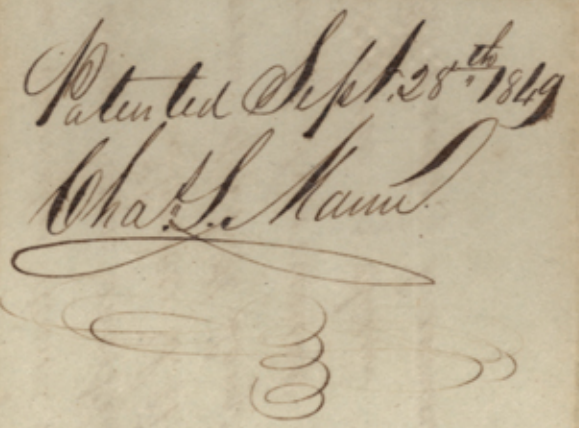 Patented Sept. 28th 1849
Chas. L. Mann